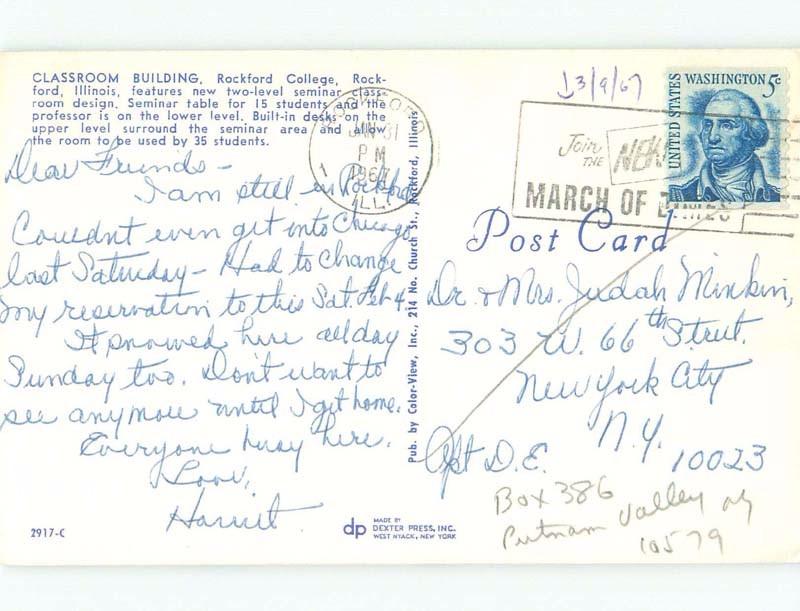 CLASSROOM BUILDING, Rockford College, Rock-
ford, Illinois, features new two-level seminar class-
room design. Seminar table for 15 students and the
professor is on the lower level. Built-in desks on the
upper level surround the seminar area and allow
the room to be used by 35 students.
Dear Friends -
I am still in Rockford
Couldnt even get into Chicago
last Saturday - Had to change
my reservation to this Sat. Feb 4.
It snowed here all day
Sunday too. Don't want to
see anymore until I get home.
Everyone busy here.
Love,
Harriet
2917-C
Pub. by Color-View, Inc., 214 No. Church St., Rockford, Illinois
dp MADE BY
DEXTER PRESS, INC.
WEST NYACK, NEW YORK
ROCKFORD
JAN 31
PM
1967
ILL.
3/9/67
Join
THE
MARCH OF DIMES
UNITED STATES
WASHINGTON 5c
Post Card
Dr. & Mrs. Judah Minkin,
303 W. 66th Street.
New York City
N.Y.
Apt D.E. 10023
Box 386
Putnam Valley NY
10579